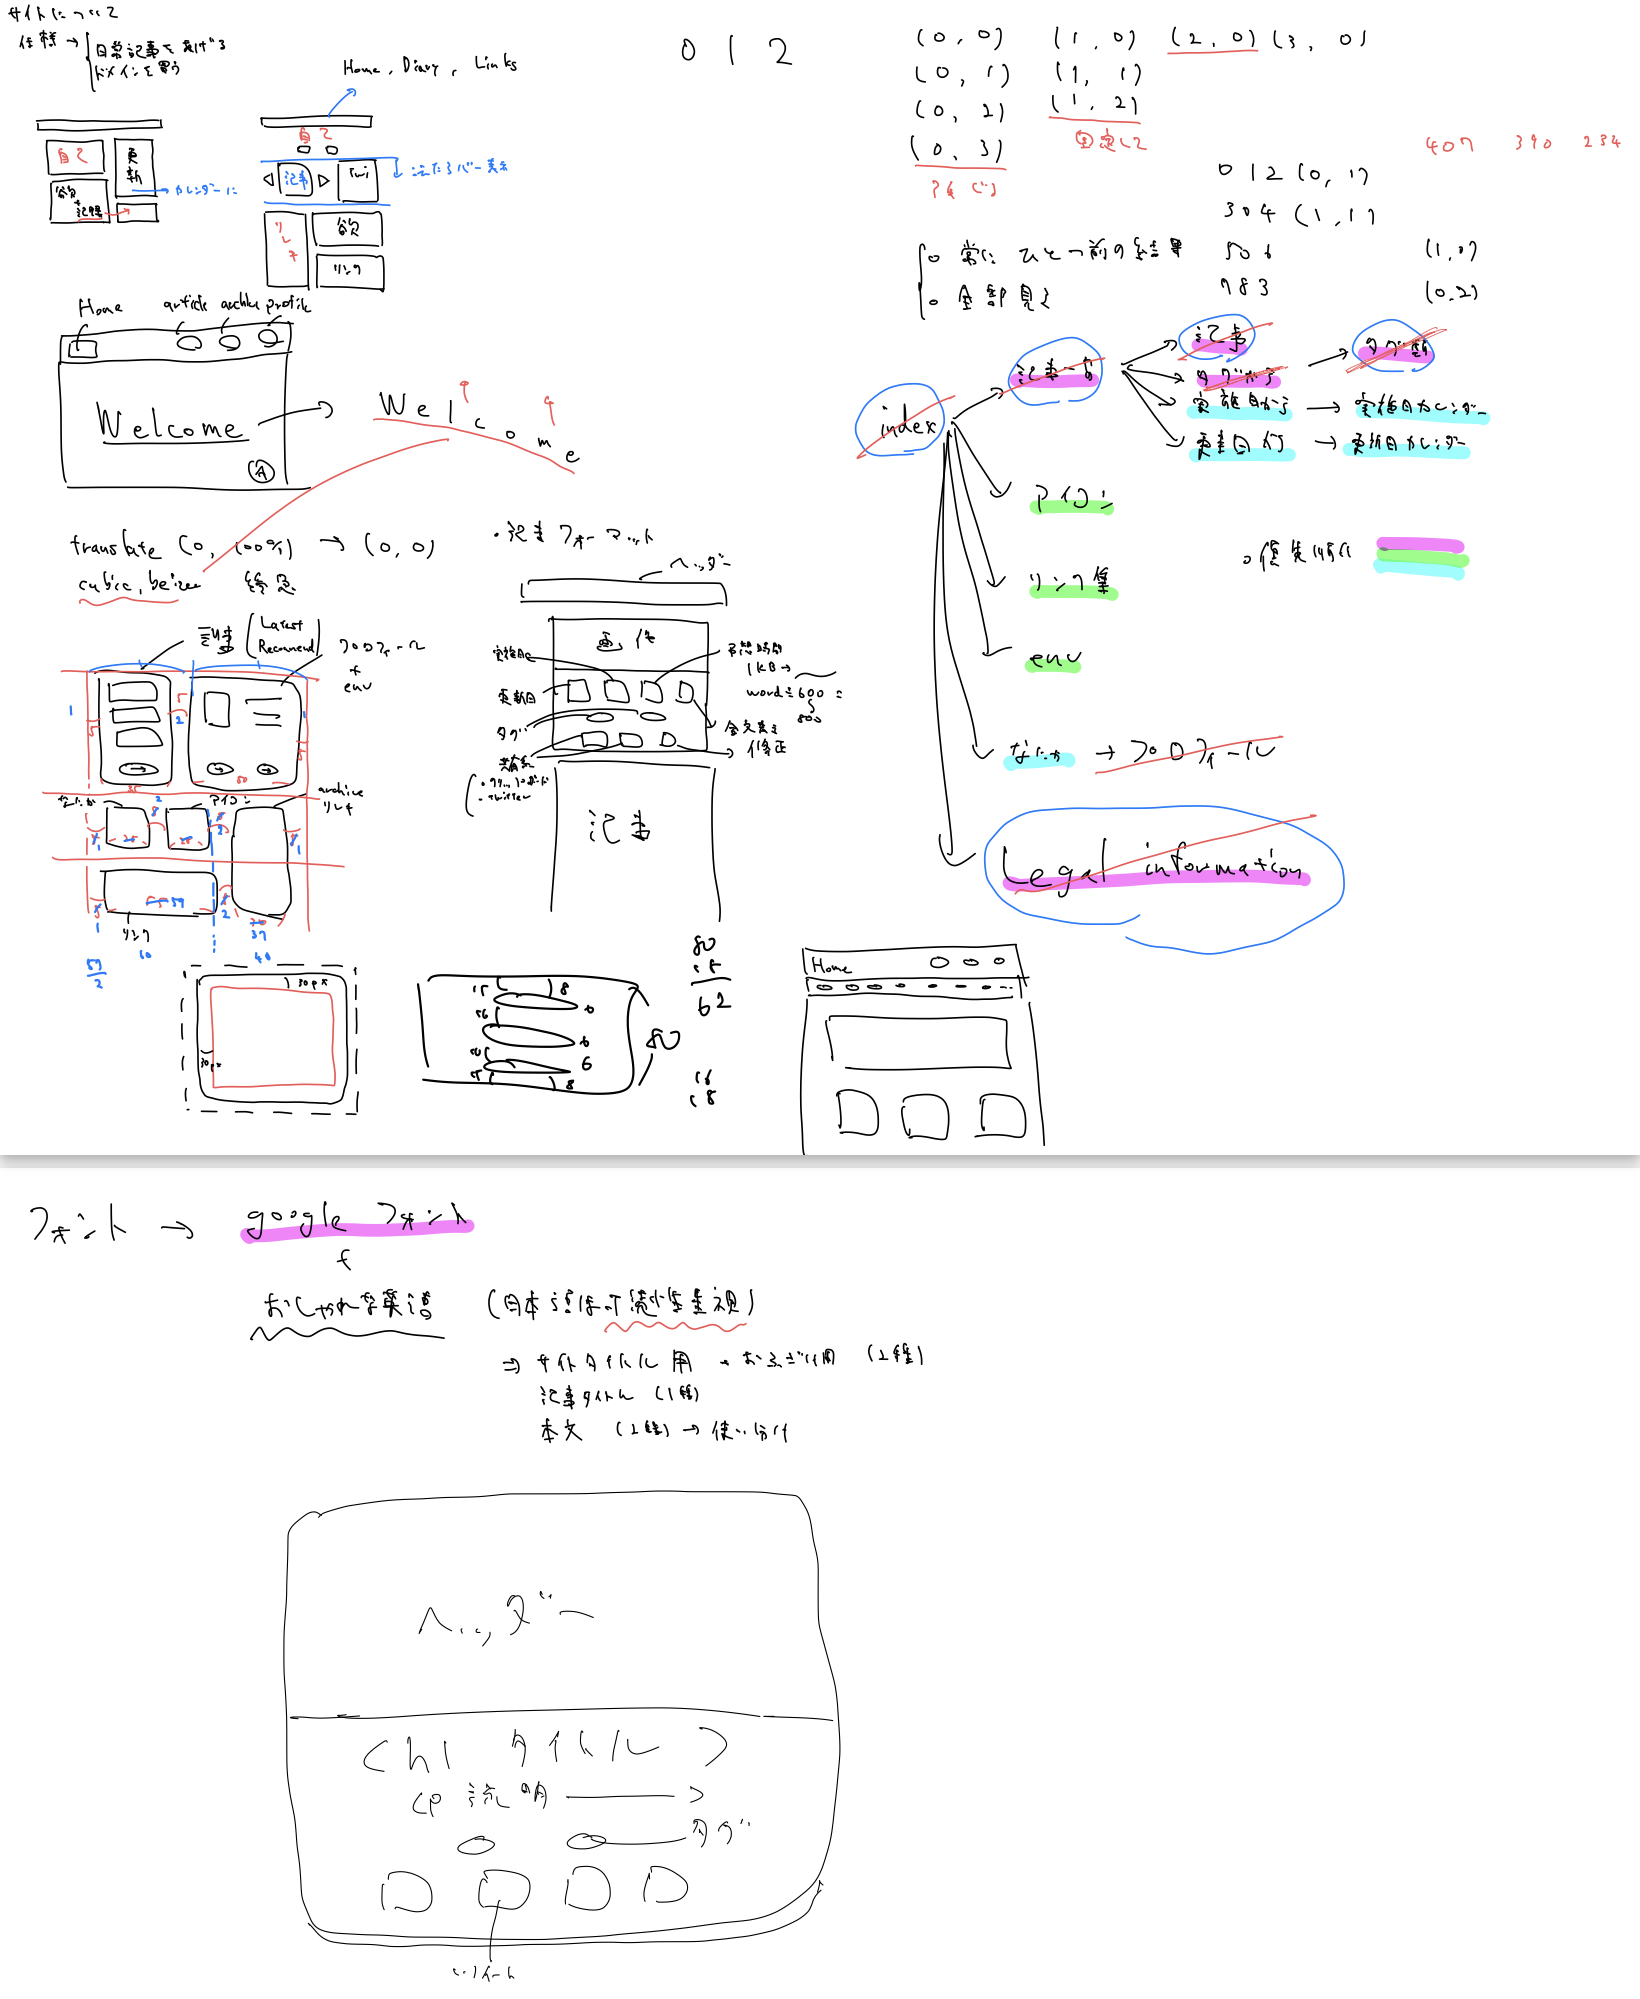 サイトについて
仕様→
日常記事を挙げる
ドメインを買う
Home, Diary, Links
自己
更新
カレンダーに
欲
記事
リンク
Home
article
profile
Welcome
Welcome
translate (0, 100%) → (0, 0)
緩急
・記事フォーマット
ヘッダー
画像
実施日
更新日
タグ
共有系
予想時間
1KB→
word≒600
800
全文
修正
記事
記事
Latest
Recommend
プロフィール
+
env
なにか
アイコン
archive
リンク
60
37
40
57
2
30px
30px
80
18
62
80
16
18
Home
0 1 2
(0, 0) (1, 0) (2, 0) (3, 0)
(0, 1) (1, 1)
(0, 2) (1, 2)
(0, 3)
固定して
407 390 234
0 1 2 (0, 1)
304 (1, 1)
506
783
(1, 0)
(0, 2)
○ 常に ひとつ前の結果
○ 全部見る
index
記事一覧
記事
タグから
タグ
実施日から → 実施日カレンダー
更新日から → 更新日カレンダー
アイコン
リンク集
env
なにか → プロフィール
Legal information
○優先順位
フォント → google フォント
おしゃれな英語 (日本語は可読性重視)
⇒ サイトタイトル用・おふざけ用 (1種)
記事タイトル (1種)
本文 (1種) → 使い分け
ヘッダー
<h1 タイトル >
<p 説明 >
タグ
ツイート